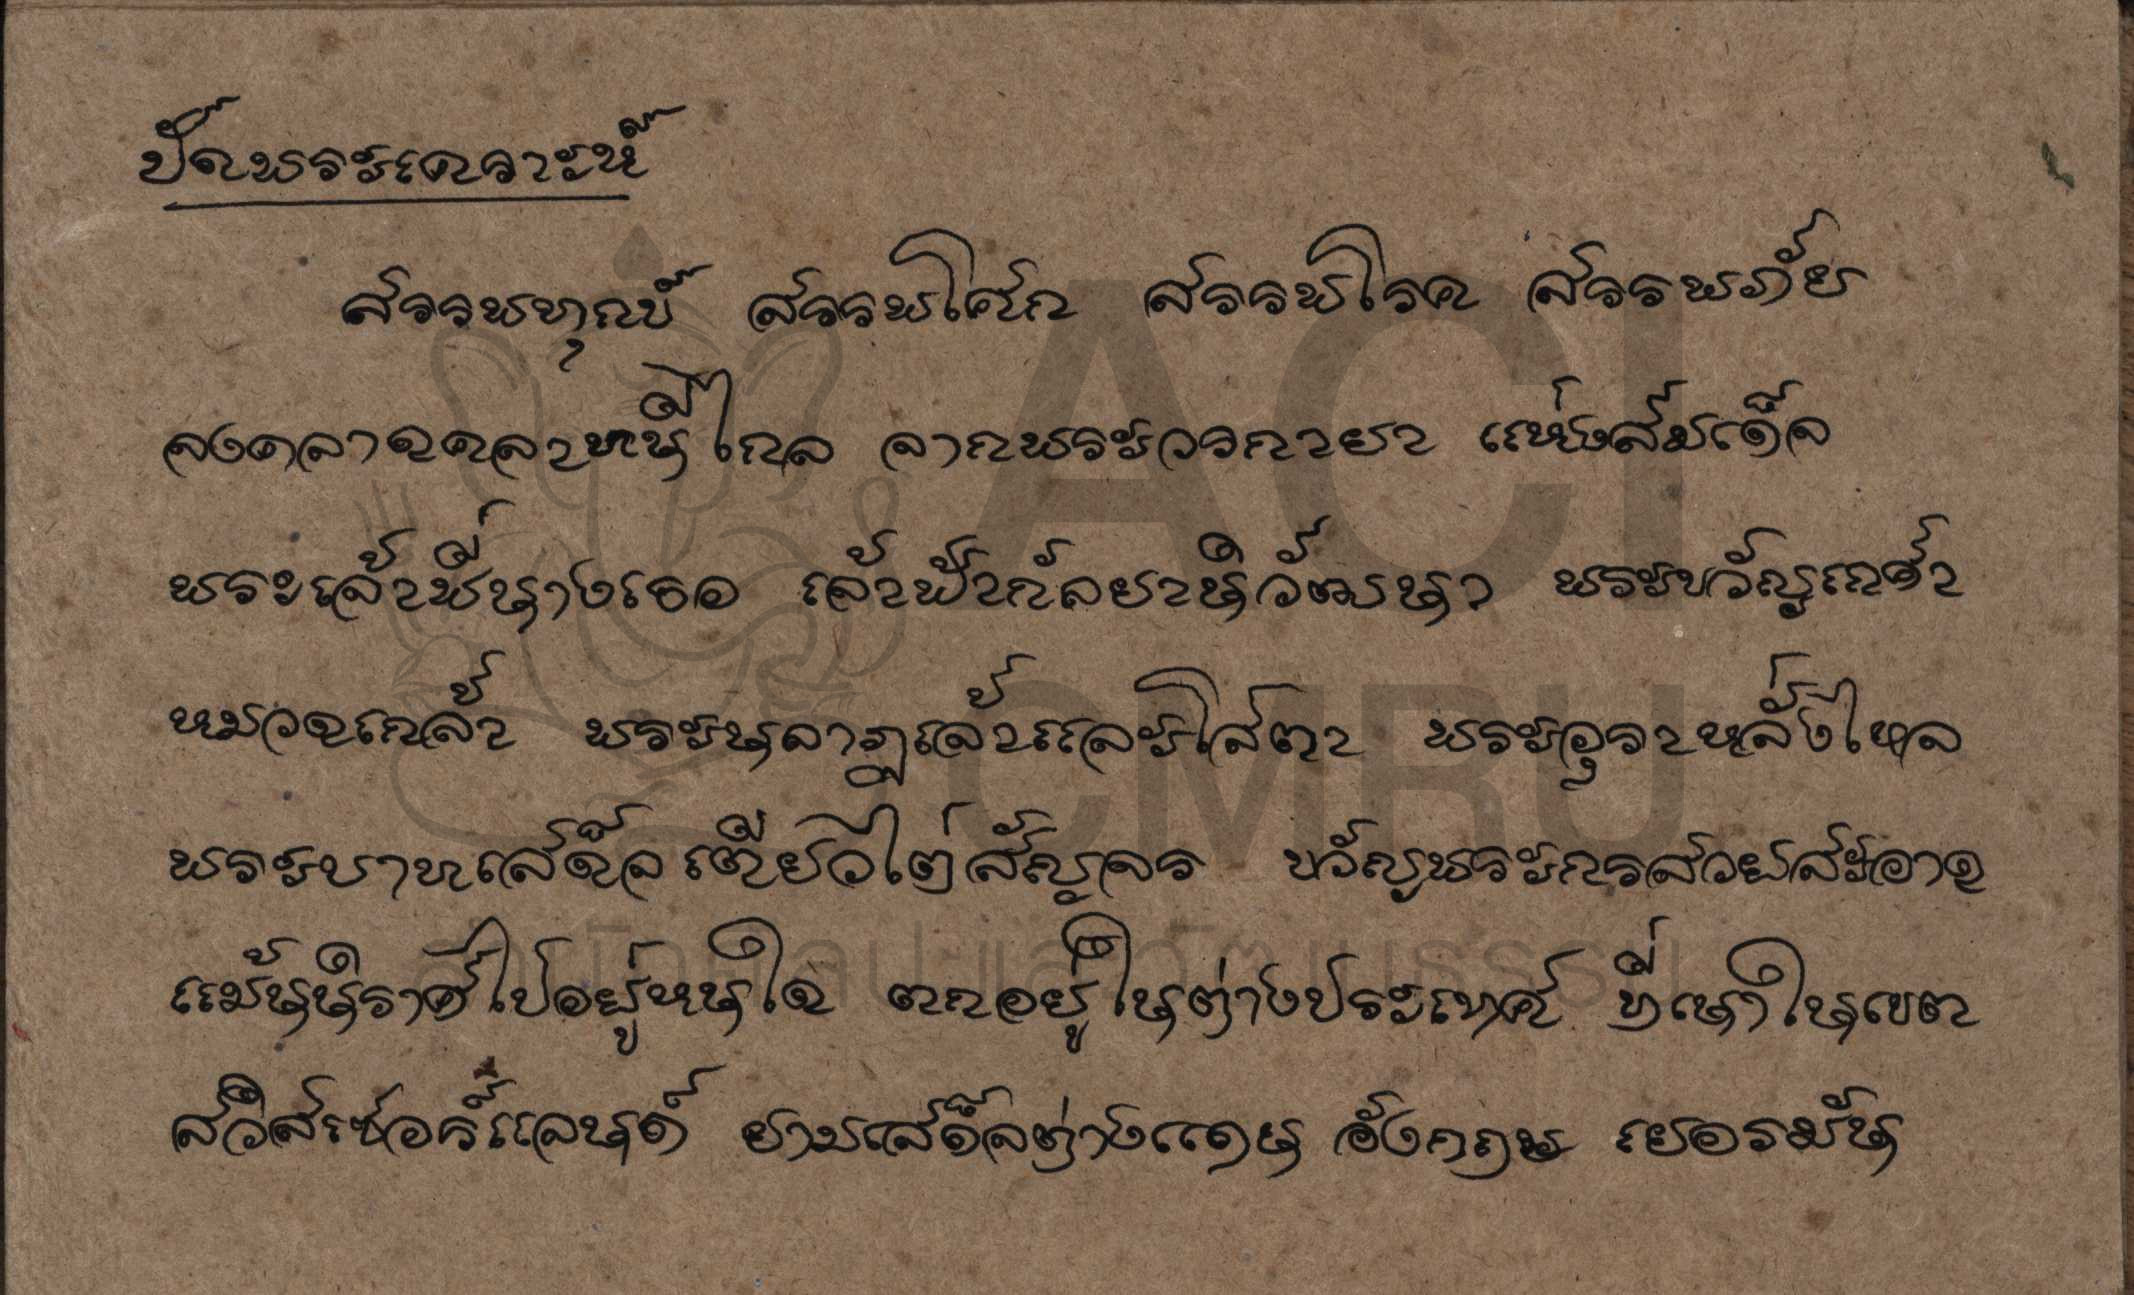 ปัดพระเคราะห์
สรรพทุกข์ สรรพโศก สรรพโรค สรรพภัย
จงคลาดคลาหนีไกล จากพระวรกายา แห่งสมเด็จ
พระเจ้าพี่นางเธอ เจ้าฟ้ากัลยาณิวัฒนา พระขวัญเกศา
หมวดเกล้า พระนลาฏเจ้าและใสตา พระอุราหลั่งไหล
พระบาทเสด็จเตียวไต่สัญจร ขวัญพระกรสวยสะอาด
แม้นนิราศไปอยู่หนใด ตกอยู่ในต่างประเทศ ที่เนาในเขต
สวิสเซอร์แลนด์ ยามเสด็จต่างแดน อังกฤษ เยอรมัน
ACI
CMRU